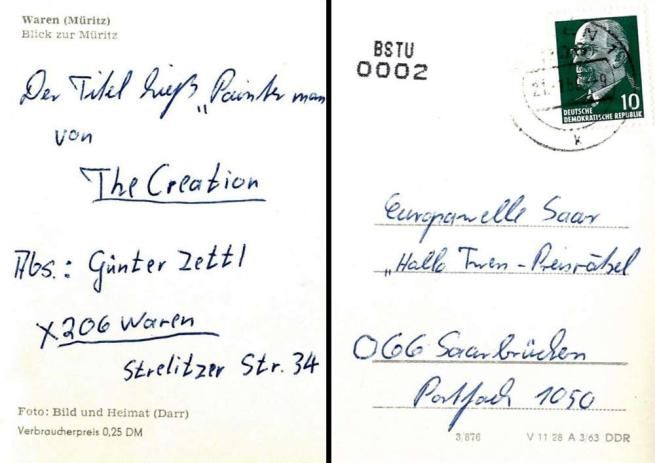 Waren (Müritz)
Blick zur Müritz
Der Titel hieß „Painter man
von
The Creation
Abs.: Günter Zettl
X206 Waren
Strelitzer Str. 34
Foto: Bild und Heimat (Darr)
Verbraucherpreis 0,25 DM
BSTU
0002
10
DEUTSCHE
DEMOKRATISCHE REPUBLIK
Europawelle Saar
„Hallo Twen-Preisrätsel
066 Saarbrücken
Postfach 1050
3/876 V 11 28 A 3/63 DDR